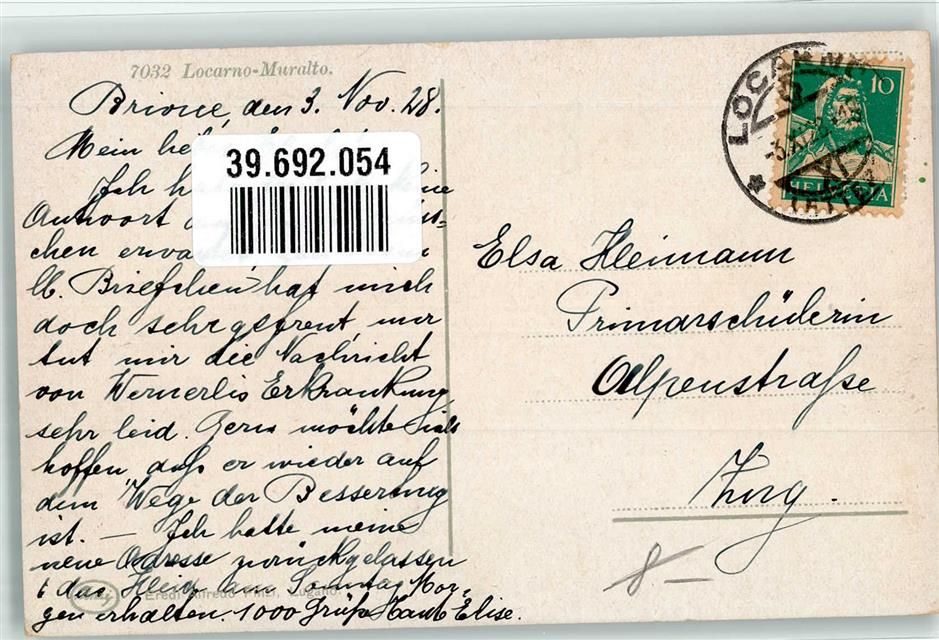 7032 Locarno-Muralto.
Brione, den 3. Nov. 28.
Mein
39.692.054
Ich
Antwort
chen
lb. Briefchen hat mich
doch sehr gefreut, nur
tut mir die Nachricht
von Wernerlis Erkrankung
sehr leid. Gern möchte ich
hoffen, daß er wieder auf
dem Wege der Besserung
ist. — Ich hatte meine
neue Adresse zurückgelassen
das am Sonntag Mor-
gen erhalten. 1000 Grüße Elise.
Eredi Alfredo Lugano.
LOCARNO
10
HELVETIA
Elsa Heimann
Primarschülerin
Alpenstraße
Zug.
8 —